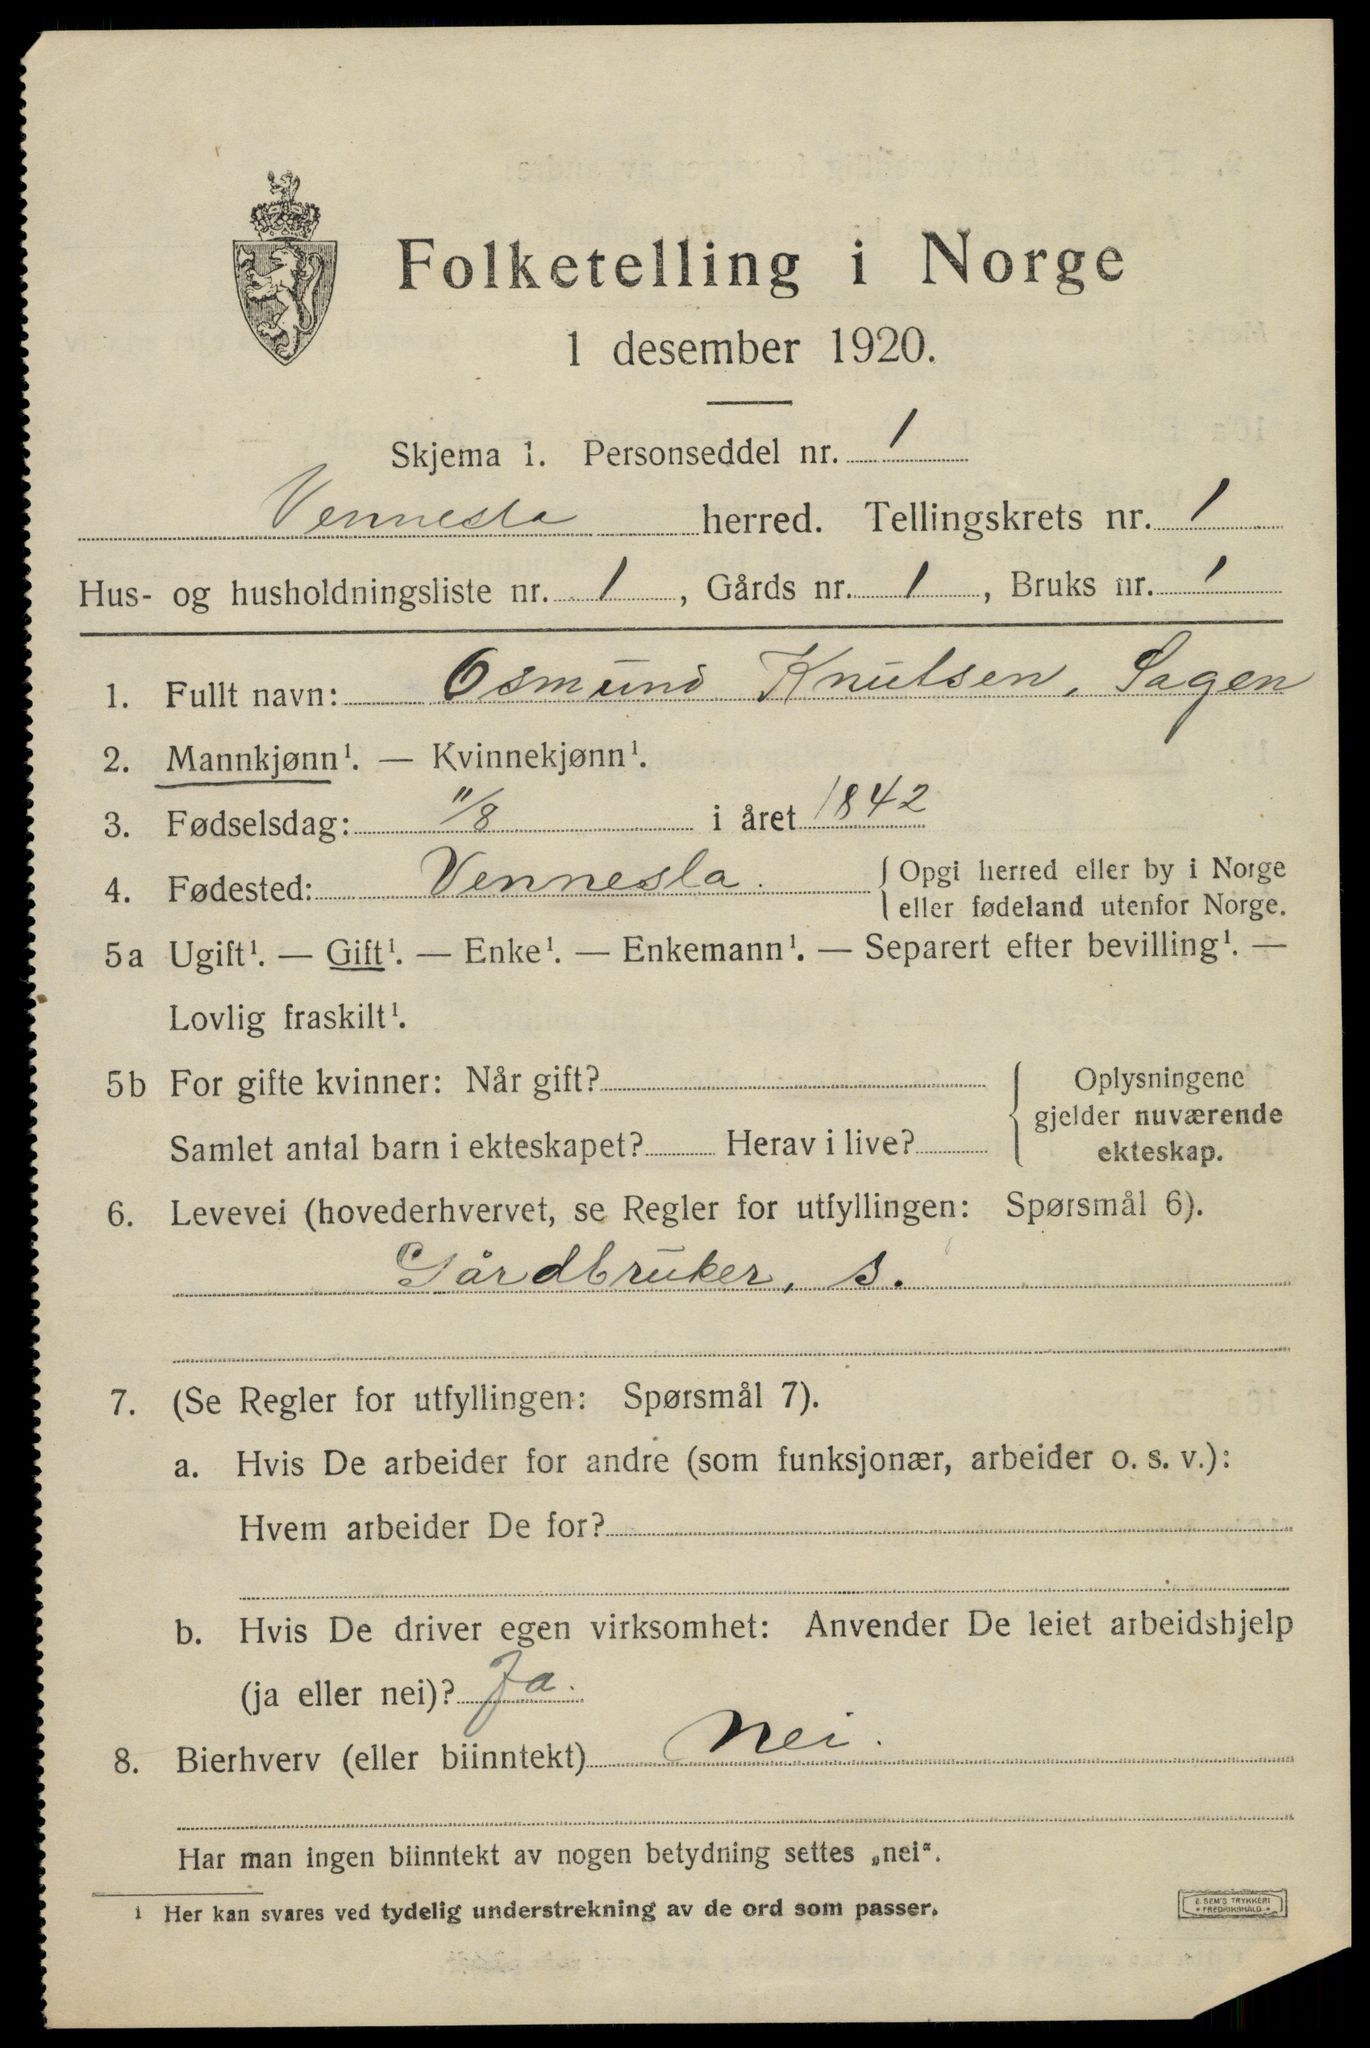 Folketelling i Norge
1 desember 1920.
Skjema 1. Personseddel nr. 1
Vennesla herred. Tellingskrets nr. 1
Hus- og husholdningsliste nr. 1, Gårds nr. 1, Bruks nr. 1
1. Fullt navn: Osmund Knutsen, Sagen
2. Mannkjønn¹. — Kvinnekjønn¹.
3. Fødselsdag: 11/8 i året 1842
4. Fødested: Vennesla. { Opgi herred eller by i Norge
eller fødeland utenfor Norge.
5a Ugift¹. — Gift¹. — Enke¹. — Enkemann¹. — Separert efter bevilling¹. —
Lovlig fraskilt¹.
5b For gifte kvinner: Når gift? { Oplysningene
gjelder nuværende
Samlet antal barn i ekteskapet? Herav i live? ekteskap.
6. Levevei (hovederhvervet, se Regler for utfyllingen: Spørsmål 6).
Gårdbruker, s.
7. (Se Regler for utfyllingen: Spørsmål 7).
a. Hvis De arbeider for andre (som funksjonær, arbeider o. s. v.):
Hvem arbeider De for?
b. Hvis De driver egen virksomhet: Anvender De leiet arbeidshjelp
(ja eller nei)? Ja.
8. Bierhverv (eller biinntekt) Nei.
Har man ingen biinntekt av nogen betydning settes „nei“.
1 Her kan svares ved tydelig understrekning av de ord som passer.
E. SEM'S TRYKKERI
* FREDRIKSHALD *